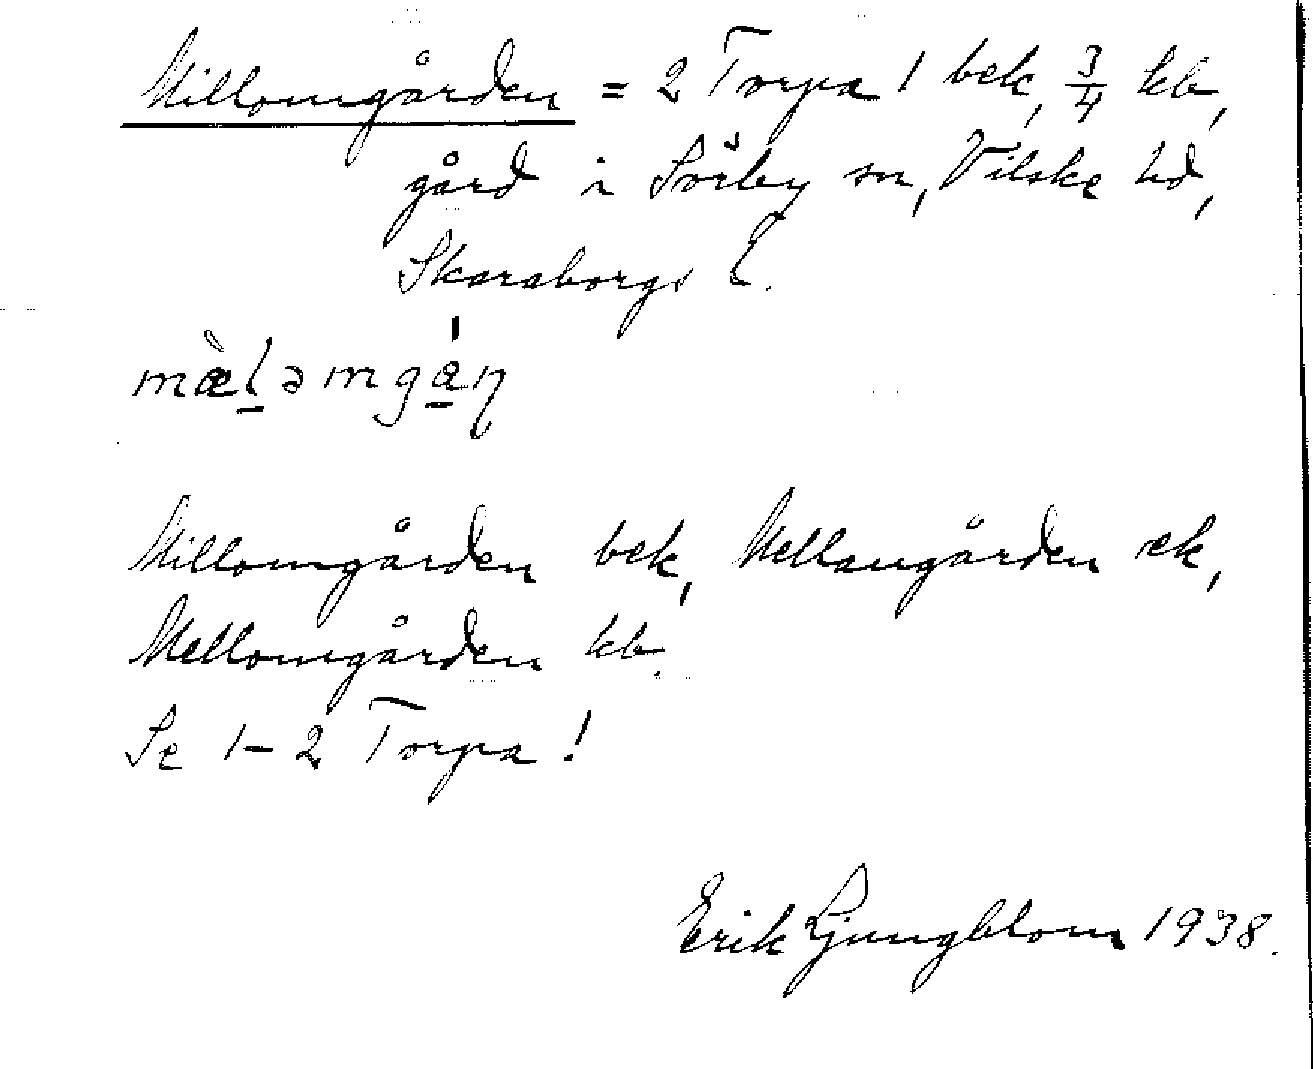 Millomgården = 2 Torpa 1 bek, 3/4 kb,
gård i Sörby sn, Vilske hd,
Skaraborgs l.
mæ̀l̠əmgá̠ɳ
Millomgården bek, Mellangården ek,
Mellomgården kb.
Se 1-2 Torpa!
Erik Ljungblom 1938.